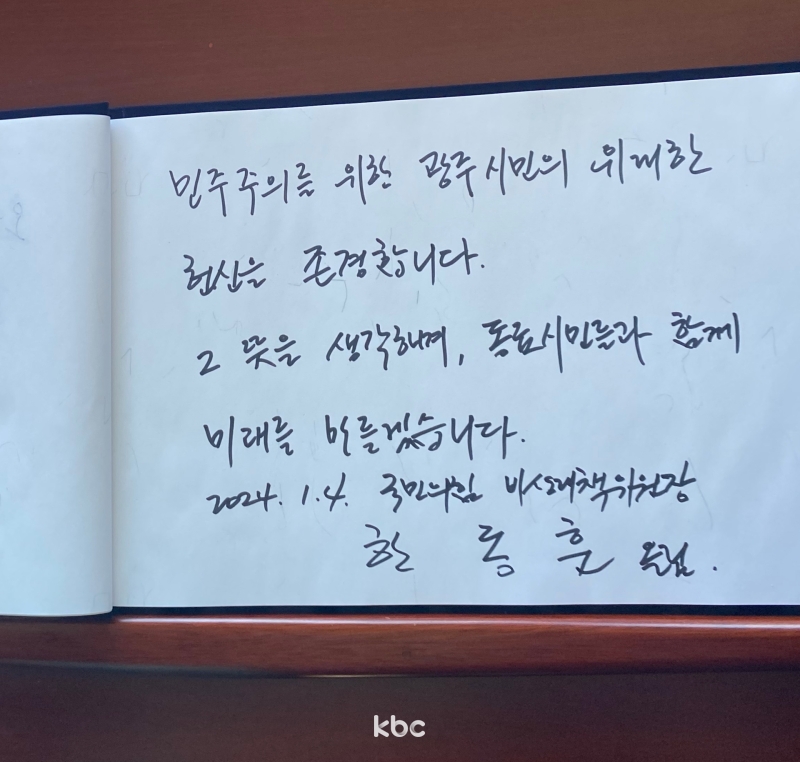 민주주의를 위한 광주시민의 위대한
헌신을 존경합니다.
그 뜻을 생각하며, 동료시민들과 함께
미래를 만들겠습니다.
2024. 1. 4. 국민의힘 비상대책위원장
한 동 훈 올림.
kbc